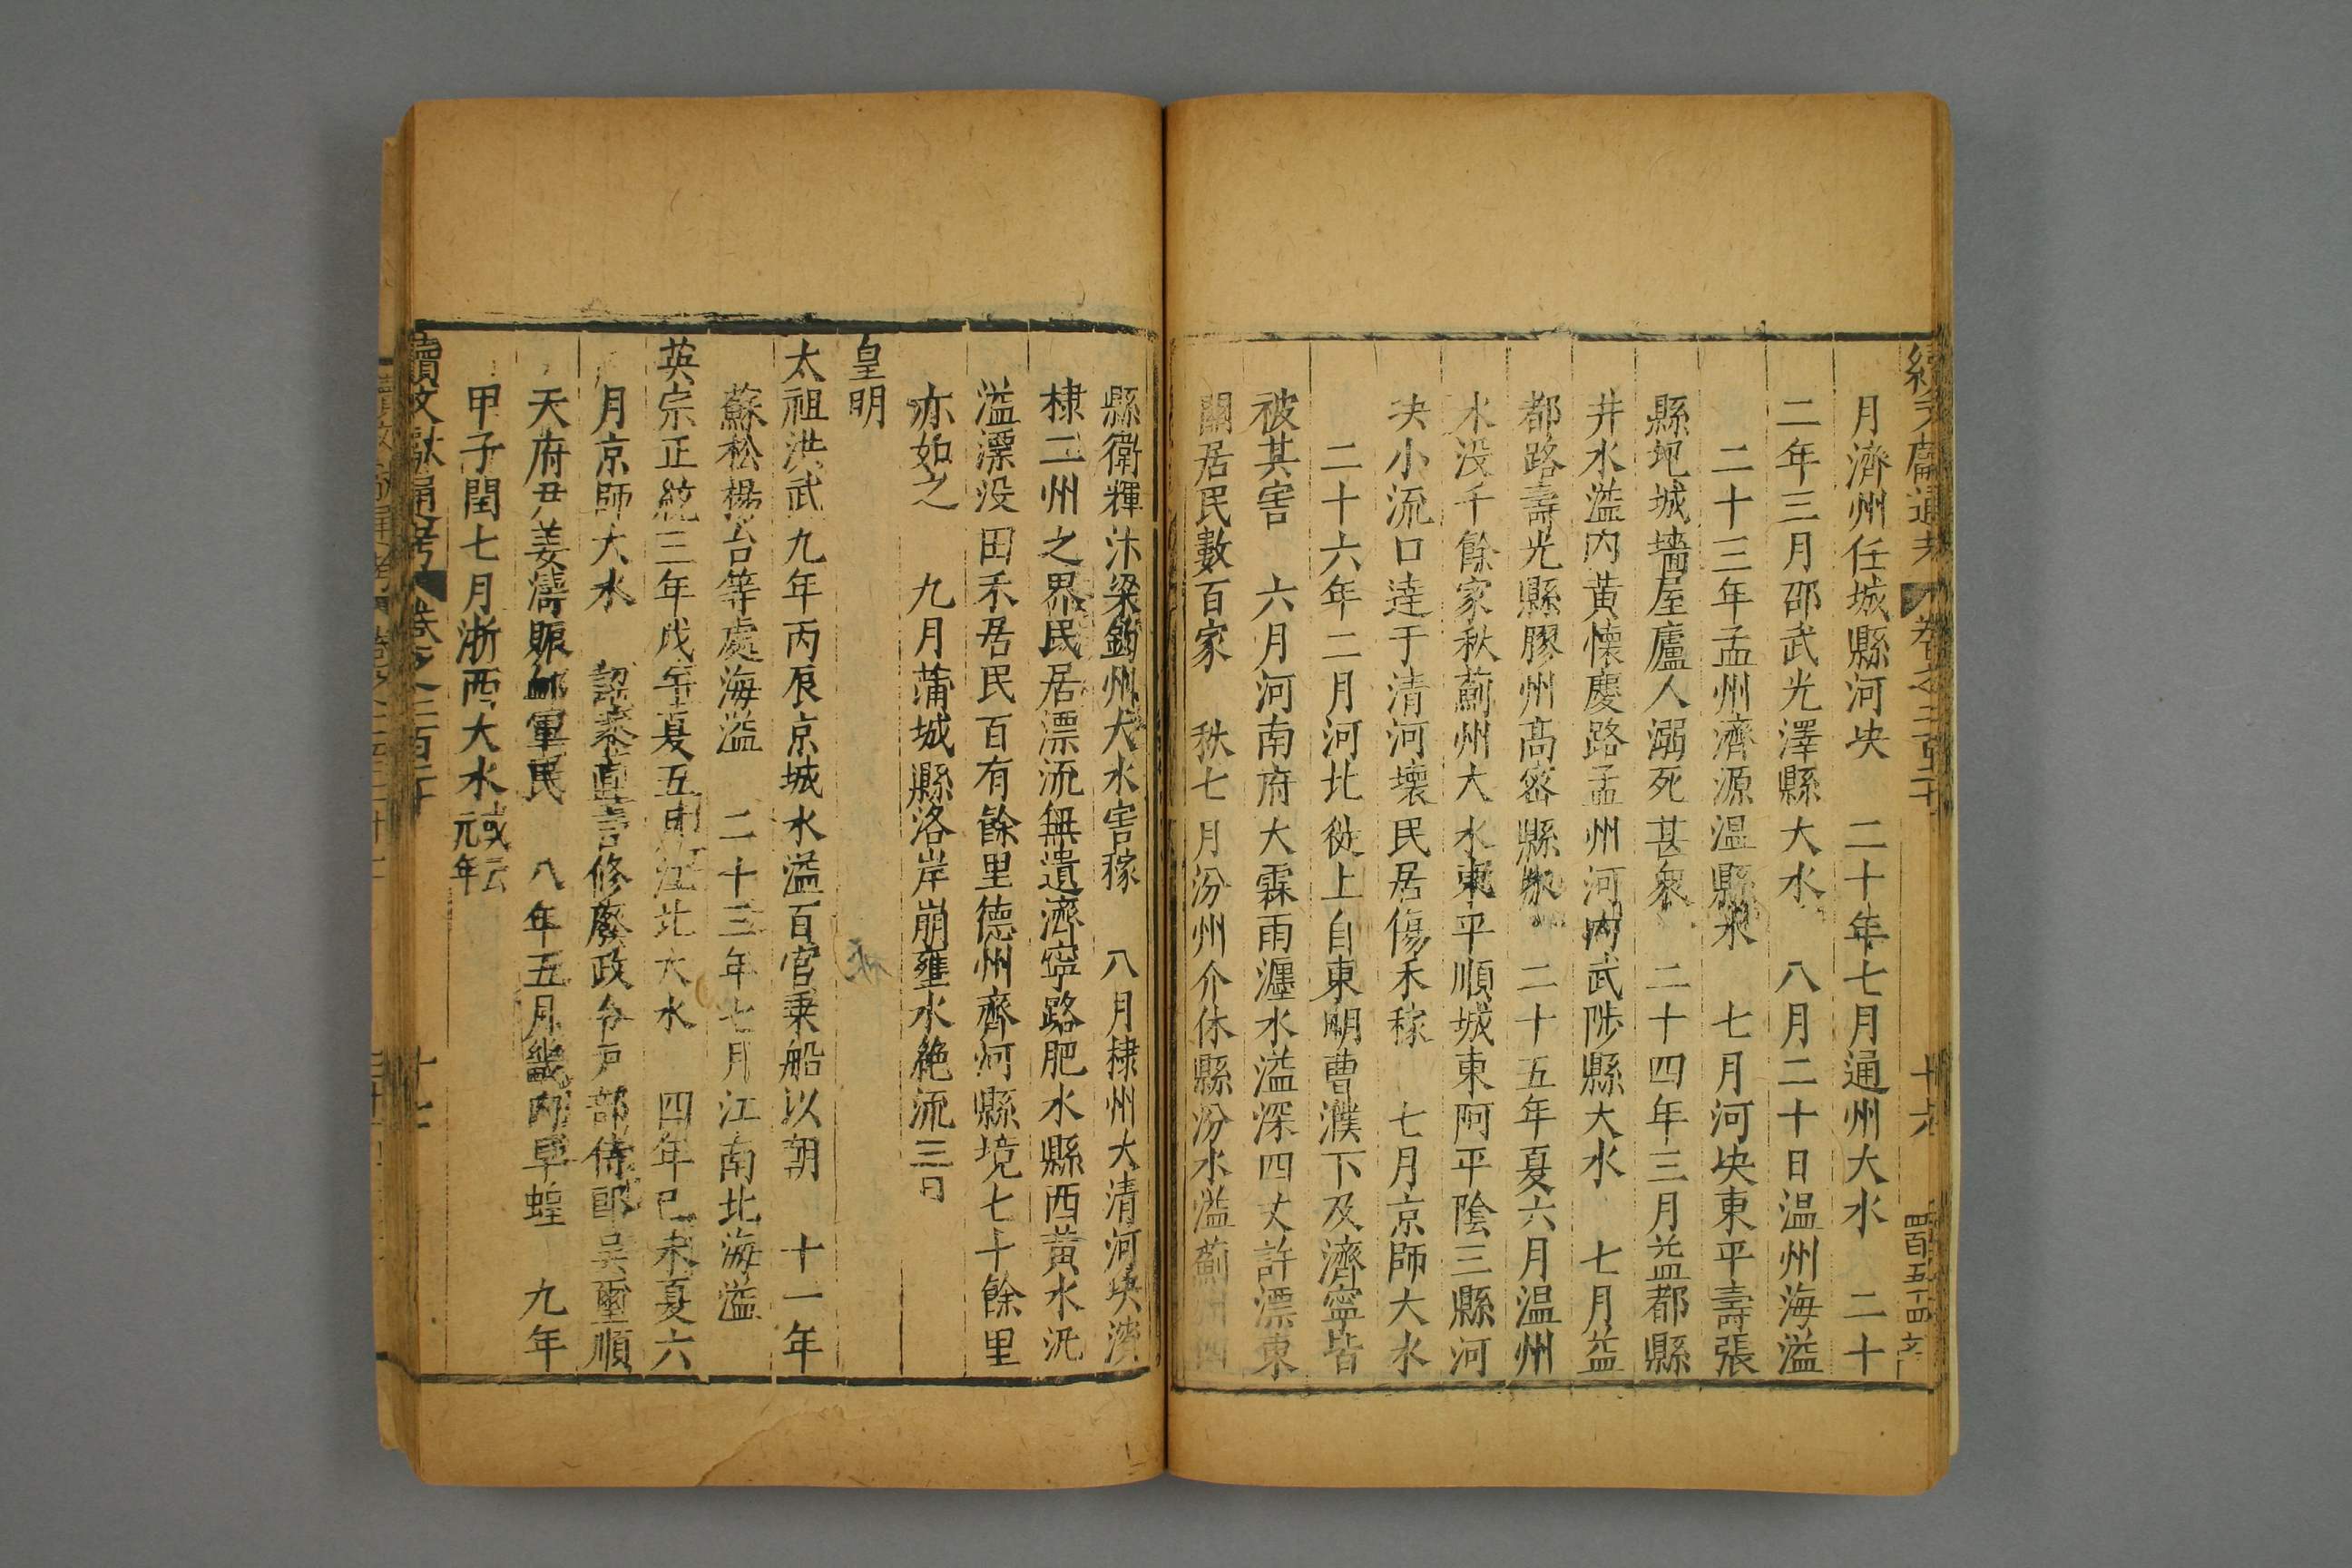 月濟州任城縣河決 二十年七月通州大水 二十
二年三月邵武光澤縣大水 八月二十日温州海溢
二十三年孟州濟源温縣水 七月河決東平壽張
縣圯城墻屋廬人溺死甚衆 二十四年三月益都縣
井水溢内黃懐慶路孟州河内武陟縣大水 七月益
都路壽光縣膠州髙宻縣水 二十五年夏六月温州
水没千餘家秋薊州大水東平順城東阿平陰三縣河
决小流口逹于清河壞民居傷禾稼 七月京師大水
二十六年二月河北徙上自東明曹濮下及濟寧皆
被其害 六月河南府大霖雨瀍水溢深四丈許漂東
關居民數百家 秩七月汾州介休縣汾水溢薊州四
縣衛輝汴梁鈞州大水害稼 八月棣州大清河决濱
棣二州之界民居漂流無遺濟寧路肥水縣西黃水汎
溢漂没田禾居民百有餘里德州齊河縣境七十餘里
亦如之 九月蒲城縣洛岸崩壅水絶流三日
皇明
太祖洪武九年丙辰京城水溢百官乗船以朝 十一年
蘇松楊台等處海溢 二十三年七月江南北海溢
英宗正統三年戊午夏五月江北大水 四年已未夏六
月京師大水 詔求直言修廢政令户部侍郎吴璽順
天府尹姜濤賑䘏軍民 八年五月畿内旱蝗 九年
甲子閏七月浙西大水或云元年
續文獻通考 卷之二百二十 十七